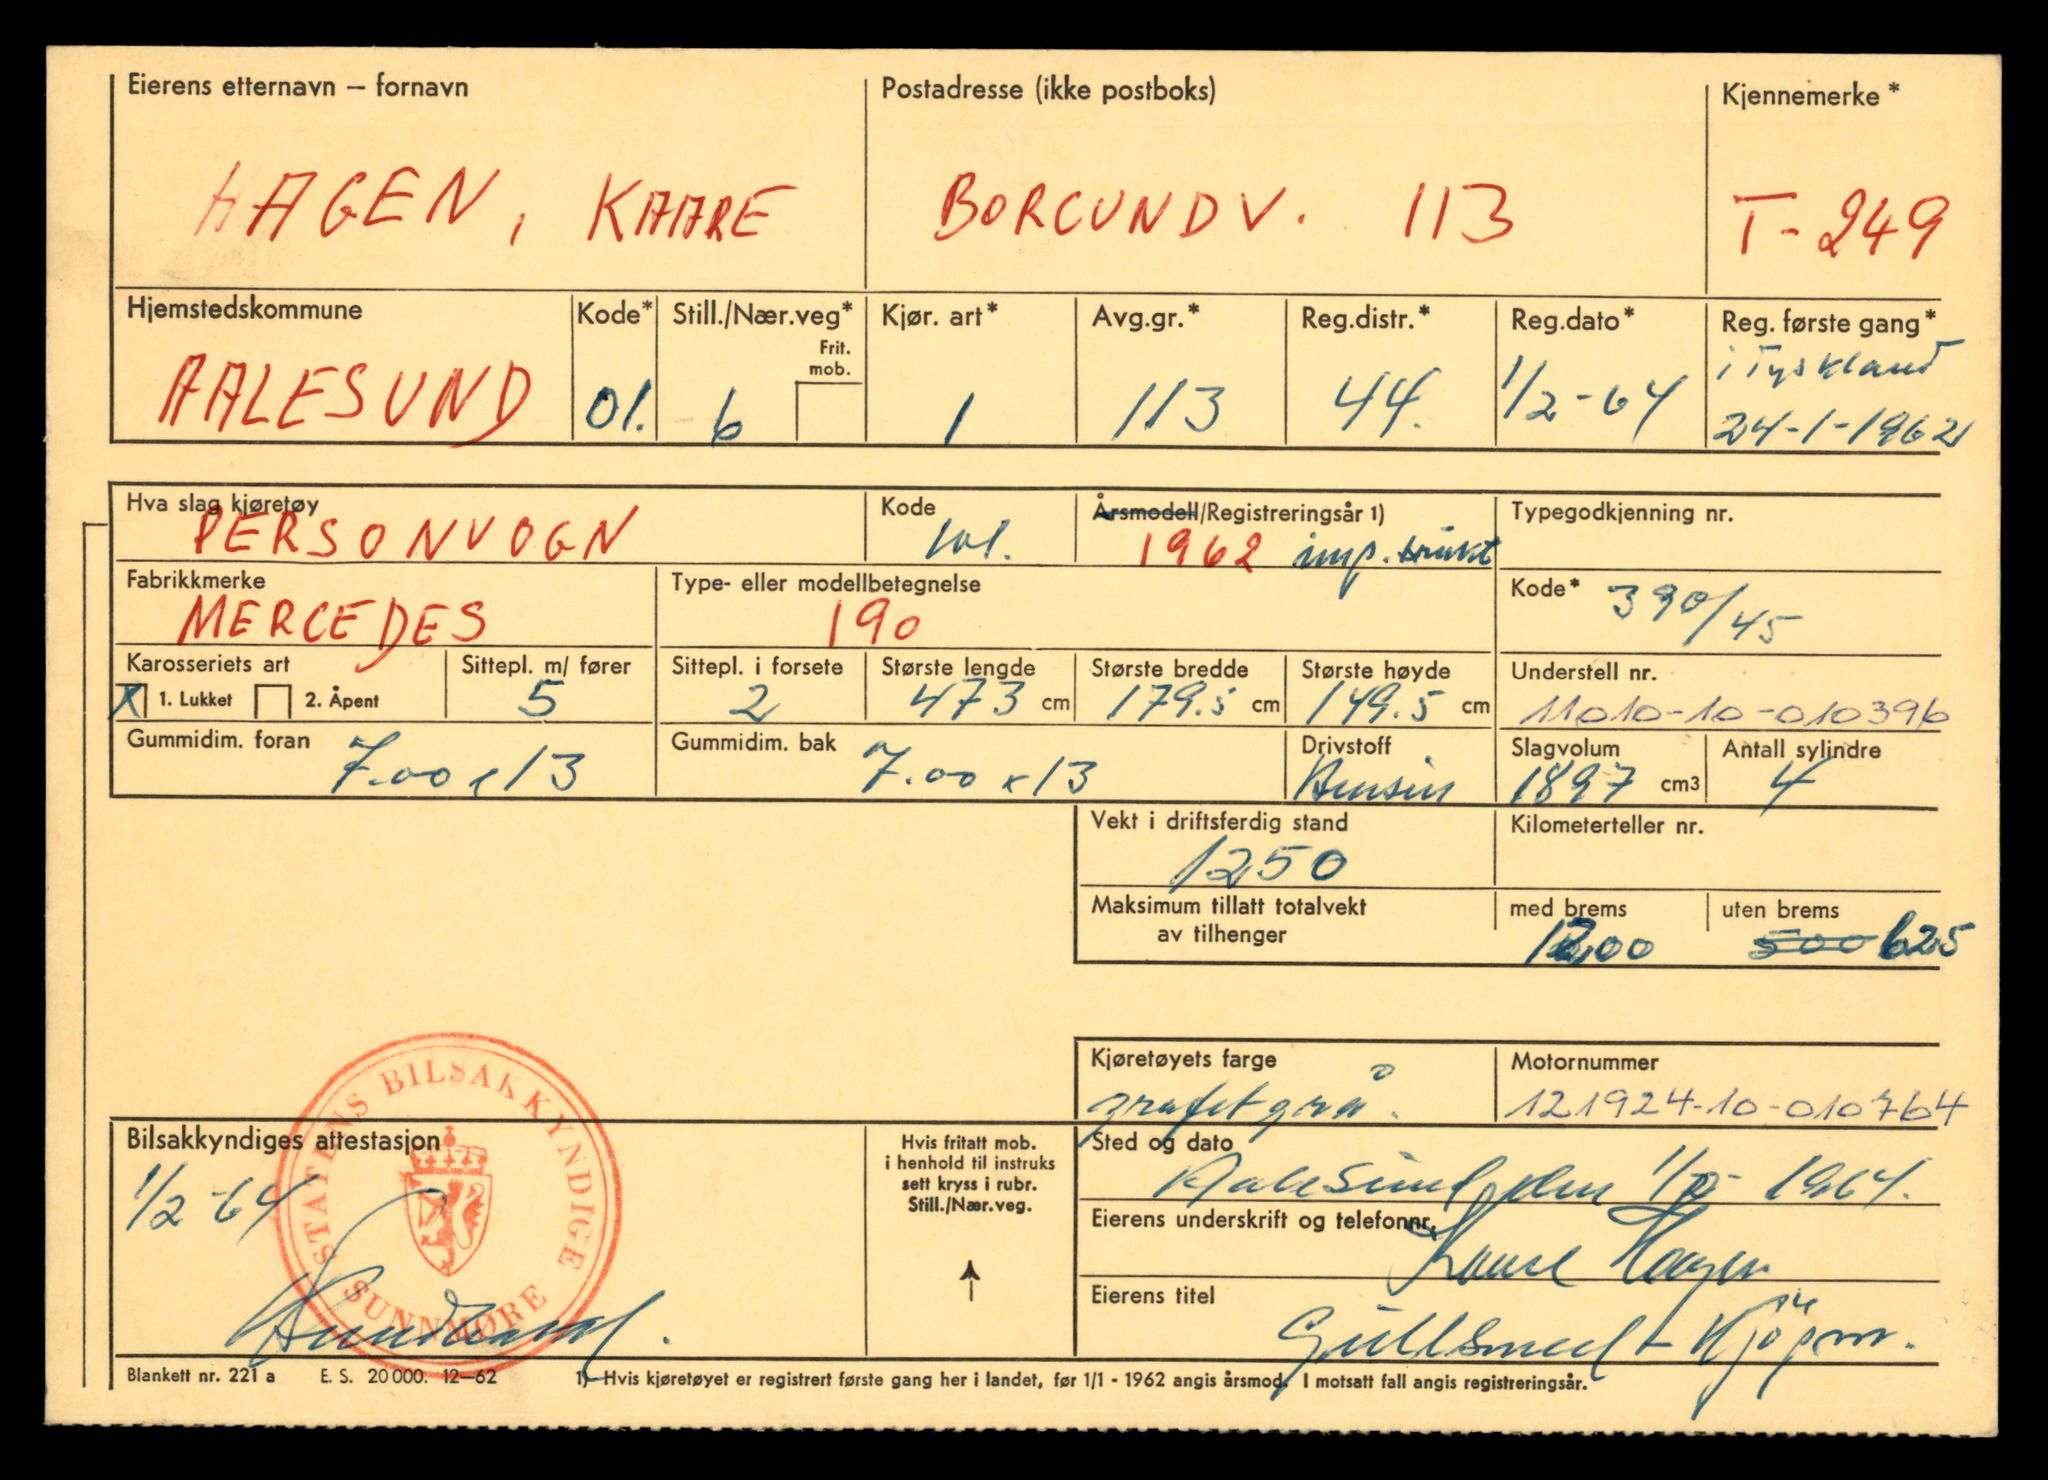 Eierens etternavn – fornavn
Postadresse (ikke postboks)
Kjennemerke *
HAGEN, KAARE
BORGUNDV. 113
T-249
Hjemstedskommune
Kode*
Still./Nær.veg*
Frit. mob.
Kjør. art*
Avg.gr.*
Reg.distr.*
Reg.dato*
Reg. første gang*
AALESUND
01.
6
1
113
44.
1/2-64
i Tyskland
24-1-1962
Hva slag kjøretøy
PERSONVOGN
Kode
101.
Årsmodell/Registreringsår 1)
1962 imp. brukt
Typegodkjenning nr.
Fabrikkmerke
MERCEDES
Type- eller modellbetegnelse
190
Kode*
390/45
Karosseriets art
X 1. Lukket 2. Åpent
Sittepl. m/ fører
5
Sittepl. i forsete
2
Største lengde
473 cm
Største bredde
179.5 cm
Største høyde
149.5 cm
Understell nr.
11010-10-010396
Gummidim. foran
7.00 x 13
Gummidim. bak
7.00 x 13
Drivstoff
Bensin
Slagvolum
1897 cm3
Antall sylindre
4
Vekt i driftsferdig stand
1250
Kilometerteller nr.
Maksimum tillatt totalvekt
av tilhenger
med brems
1200
uten brems
500 625
Kjøretøyets farge
grafitgrå.
Motornummer
121924-10-010764
STATENS BILSAKKYNDIGE
SUNNMØRE
Bilsakkyndiges attestasjon
1/2-64
Hvis fritatt mob.
i henhold til instruks
sett kryss i rubr.
Still./Nær.veg.
Sted og dato
Aalesund, den 1/2- 1964.
Eierens underskrift og telefonnr.
Kaare Hagen
Eierens titel
Gullsmed + Kjøpm.
Blankett nr. 221 a E. S. 20 000. 12–62
1) Hvis kjøretøyet er registrert første gang her i landet, før 1/1 - 1962 angis årsmod. I motsatt fall angis registreringsår.